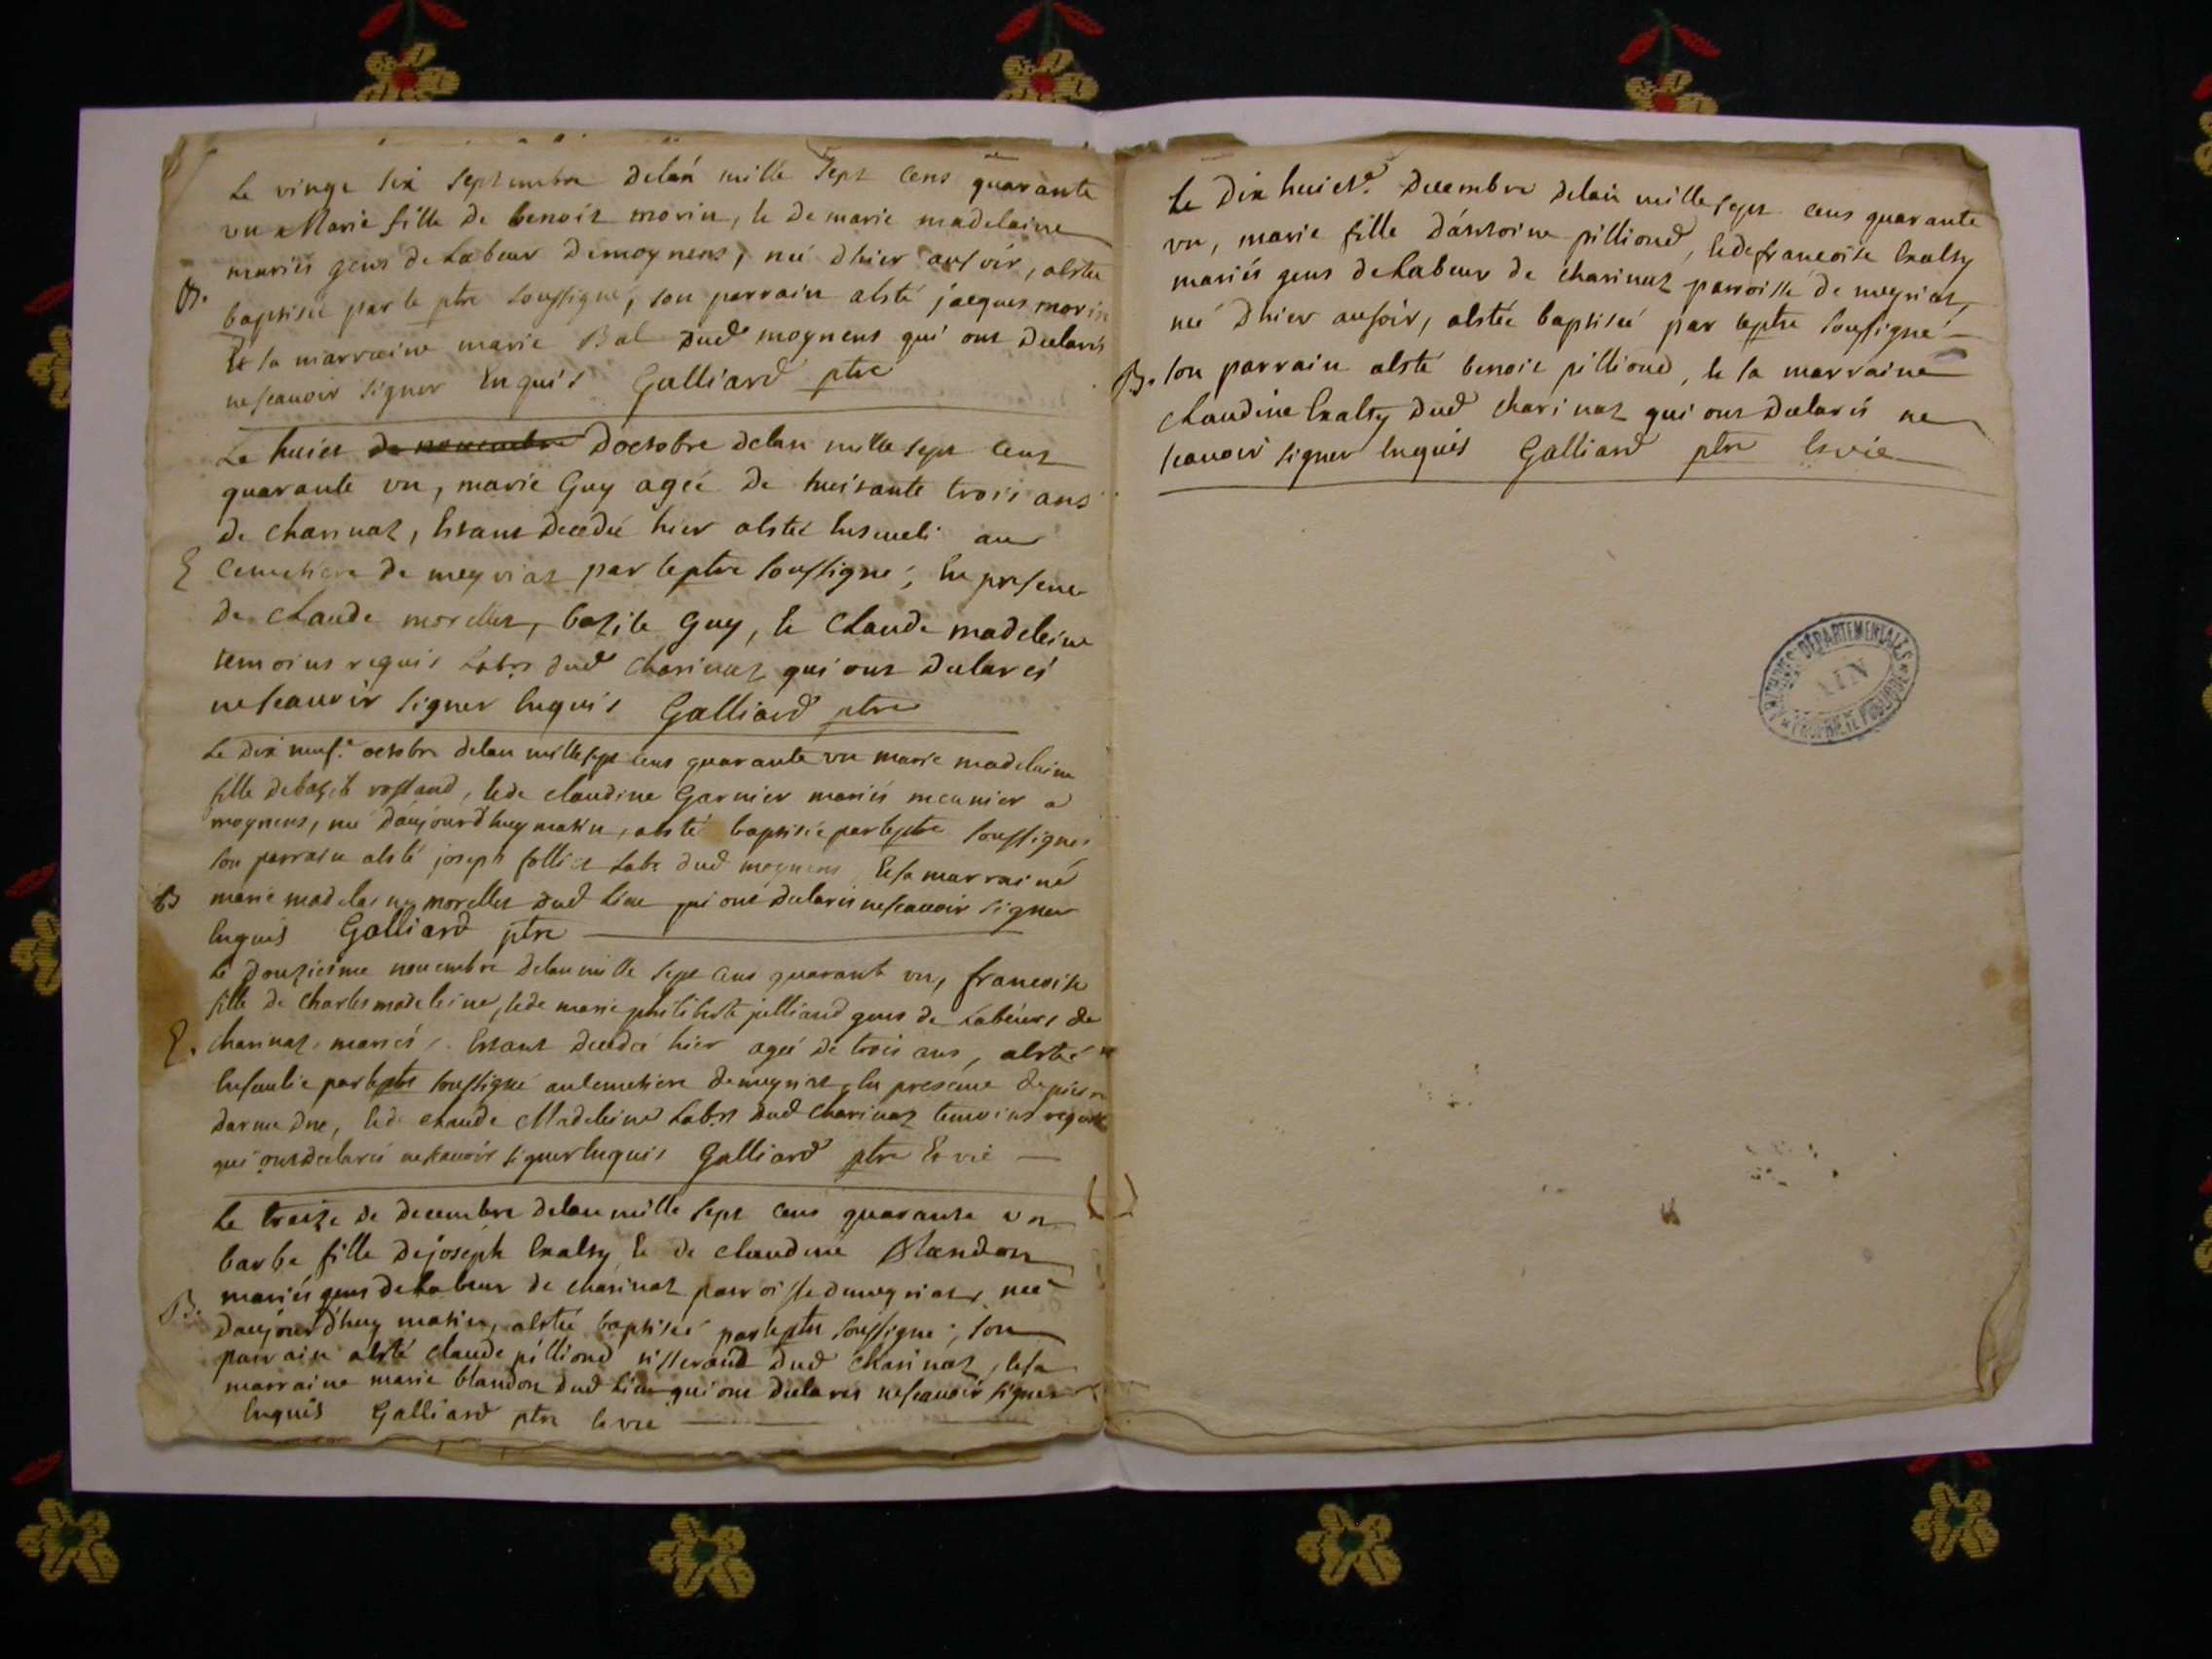 Le vingt six septembre delan mille sept cens quarante
un Marie fille de benoit morin, & de marie madelaine
mariés gens de Labeur demoynens, née dhier ausoir, aesté
B. baptisée par le ptre soussigné, son parrain aesté jacques morin
Et sa marraine marie Bal dud moynens qui ont declarés
nescauoir signer Enquis Galliard ptre
Le huict de nouembre doctobre delan mille sept cent
quarante un, marie Guy agée de huitante trois ans
de charinaz, Estant decedée hier aesté Enseueli au
E cemetiere de meyriat par leptre soussigné, En presence
de claude morellet, bazile Guy, & claude madeleine
temoins requis Labrs dud charinaz qui ont declarés
nescauoir signer Enquis Galliard ptre
Le dix neufe octobre delan mille sept cens quarante un marie madelaine
fille debazile rostand, & de claudine Garnier mariés meunier a
moynens, née daujourdhuy matin, aesté baptisée par leptre soussigné
son parrain aesté joseph follict Labr dud moynens Et sa marraine
B marie madelaine morellet dud Lieu qui ont declarés nescauoir signer
Enquis Galliard ptre
Le douziesme nouembre delan mille sept cens quarante un, francoise
fille de charles madeleine, & de marie philiberte pilliard gens de Labeurs de
E. charinaz mariés, Estant decedée hier agée de trois ans, aesté
Ensevelie par leptre soussigné au cemetiere demeyriat, En presence de pierre
& de claude Madeleine Labrs dud charinaz temoins requis
qui ont declarés nescauoir signer Enquis Galliard ptre Et vic
Le treize de decembre delan mille sept cens quarante un
barbe fille de joseph Exalty & de claudine Blandon
mariés gens de Labeur de charinaz parroisse de meyriat, née
B. daujourdhuy matin, aesté baptisée par leptre soussigné, son
parrain aesté claude pilliond tisserand dud charinaz, & sa
marraine marie blandon dud Lieu qui ont declarés nescauoir signer
Enquis Galliard ptre & vic
Le dix huicte decembre delan mille sept cens quarante
un, marie fille dantoine pilliond, & de francoise Exalty
mariés gens de Labeur de charinaz parroisse de meyriat,
née dhier ausoir, aestée baptisée par leptre soussigné
B. son parrain aesté benoit pilliond, & sa marraine
claudine Exalty dud charinaz qui ont declarés ne
scauoir signer Enquis Galliard ptre & vic
ARCHIVES DÉPARTEMENTALES
AIN
PROPRIÉTÉ PUBLIQUE